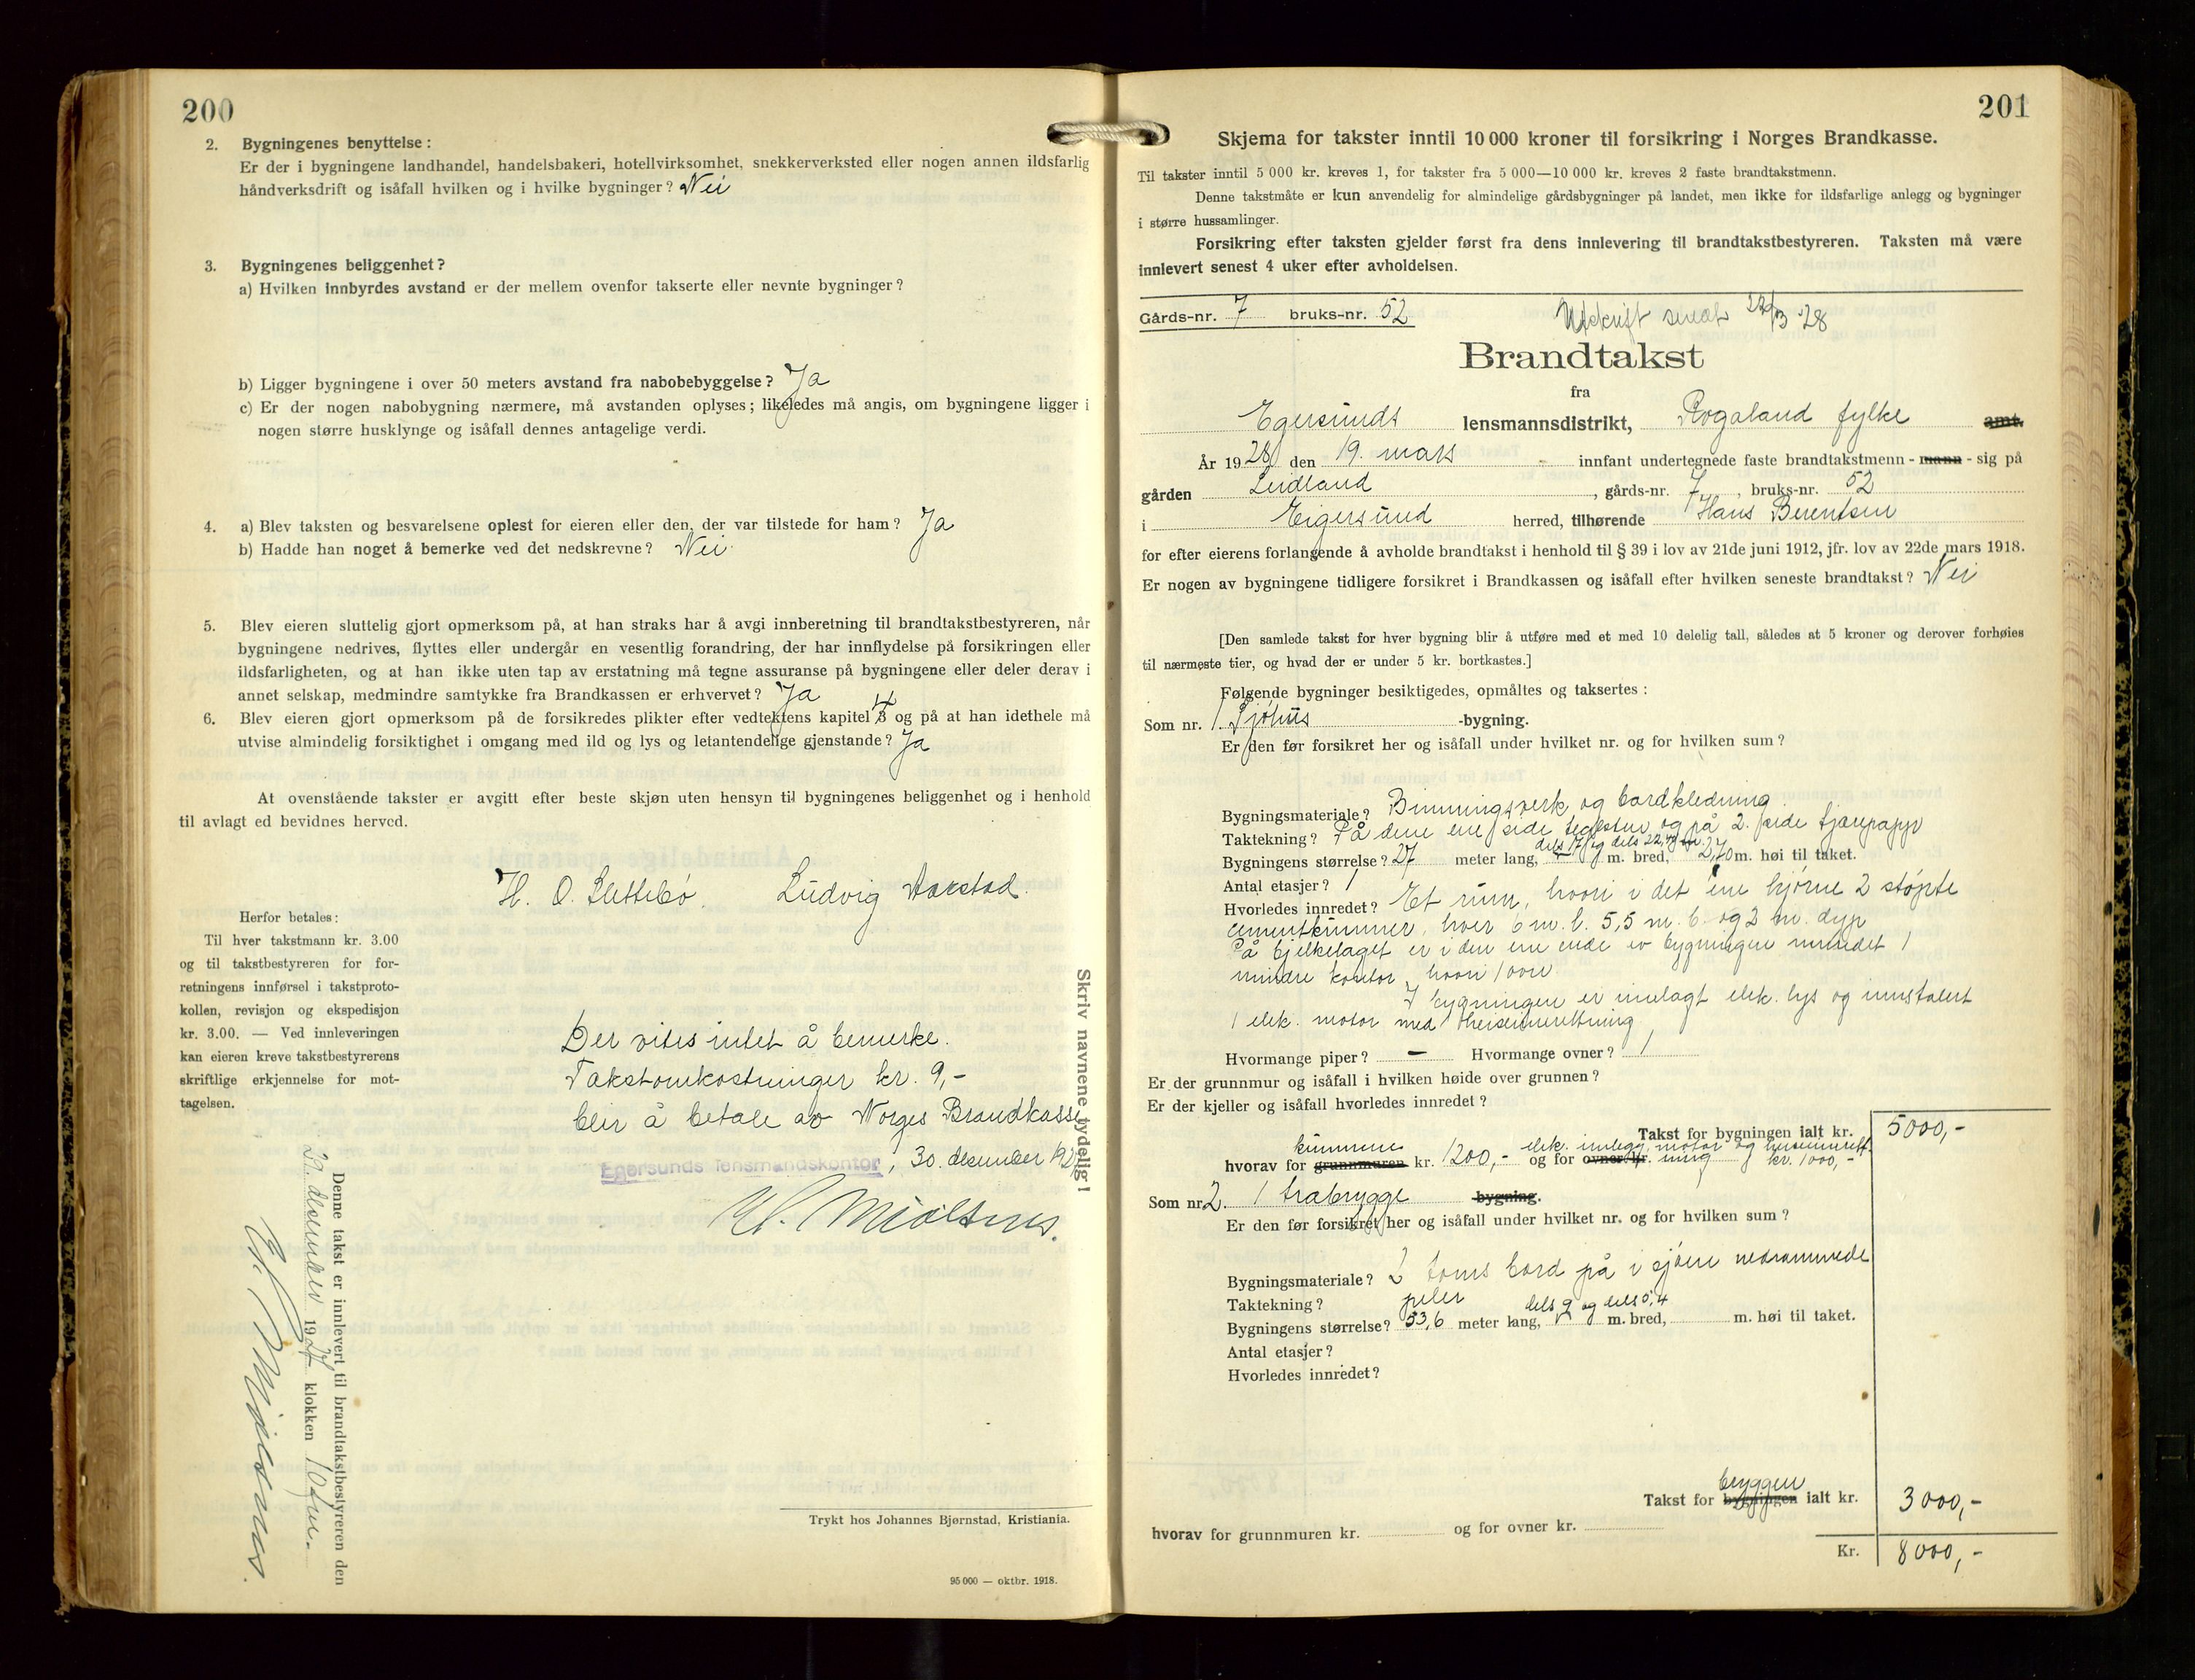 200
2. Bygningenes benyttelse:
Er der i bygningene landhandel, handelsbakeri, hotellvirksomhet, snekkerverksted eller nogen annen ildsfarlig
håndverksdrift og isåfall hvilken og i hvilke bygninger? Nei
3. Bygningenes beliggenhet?
a) Hvilken innbyrdes avstand er der mellem ovenfor takserte eller nevnte bygninger?
b) Ligger bygningene i over 50 meters avstand fra nabobebyggelse? Ja
c) Er der nogen nabobygning nærmere, må avstanden oplyses; likeledes må angis, om bygningene ligger i
nogen større husklynge og isåfall dennes antagelige verdi.
4. a) Blev taksten og besvarelsene oplest for eieren eller den, der var tilstede for ham? Ja
b) Hadde han noget å bemerke ved det nedskrevne? Nei
5. Blev eieren sluttelig gjort opmerksom på, at han straks har å avgi innberetning til brandtakstbestyreren, når
bygningene nedrives, flyttes eller undergår en vesentlig forandring, der har innflydelse på forsikringen eller
ildsfarligheten, og at han ikke uten tap av erstatning må tegne assuranse på bygningene eller deler derav i
annet selskap, medmindre samtykke fra Brandkassen er erhvervet? Ja
6. Blev eieren gjort opmerksom på de forsikredes plikter efter vedtektens kapitel 4 og på at han idethele må
utvise almindelig forsiktighet i omgang med ild og lys og letantendelige gjenstande? Ja
At ovenstående takster er avgitt efter beste skjøn uten hensyn til bygningenes beliggenhet og i henhold
til avlagt ed bevidnes herved.
H. O. Slettebö. Ludvig Aarstad.
Herfor betales:
Til hver takstmann kr. 3.00
og til takstbestyreren for for-
retningens innførsel i takstproto-
kollen, revisjon og ekspedisjon
kr. 3.00. — Ved innleveringen
kan eieren kreve takstbestyrerens
skriftlige erkjennelse for mot-
tagelsen.
Der vites intet å bemerke.
Takstomkostninger kr. 9,-
blir å betale av Norges Brandkasse
Egersunds lensmandskontor, 30. desember 192
Skriv navnene tydelig!
Denne takst er innlevert til brandtakstbestyreren den
desember 19 klokken 10
Trykt hos Johannes Bjørnstad, Kristiania.
95 000 — oktbr. 1918.
201
Skjema for takster inntil 10 000 kroner til forsikring i Norges Brandkasse.
Til takster inntil 5 000 kr. kreves 1, for takster fra 5 000—10 000 kr. kreves 2 faste brandtakstmenn.
Denne takstmåte er kun anvendelig for almindelige gårdsbygninger på landet, men ikke for ildsfarlige anlegg og bygninger
i større hussamlinger.
Forsikring efter taksten gjelder først fra dens innlevering til brandtakstbestyreren. Taksten må være
innlevert senest 4 uker efter avholdelsen.
Gårds-nr. 7 bruks-nr. 52
Utskrift sendt 22/3 '28
Brandtakst
fra
Egersunds lensmannsdistrikt, Rogaland fylke amt.
År 1928 den 19. mars innfant undertegnede faste brandtakstmenn - mann - sig på
gården Leidland, gårds-nr. 7, bruks-nr. 52
i Eigersund herred, tilhørende Hans Berentsen
for efter eierens forlangende å avholde brandtakst i henhold til § 39 i lov av 21de juni 1912, jfr. lov av 22de mars 1918.
Er nogen av bygningene tidligere forsikret i Brandkassen og isåfall efter hvilken seneste brandtakst? Nei
[Den samlede takst for hver bygning blir å utføre med et med 10 delelig tall, således at 5 kroner og derover forhøies
til nærmeste tier, og hvad der er under 5 kr. bortkastes.]
Følgende bygninger besiktigedes, opmåltes og taksertes:
Som nr. 1 Sjøhus -bygning.
Er den før forsikret her og isåfall under hvilket nr. og for hvilken sum?
Bygningsmateriale? Binningsverk og bordkledning
Taktekning? På dene ene side teglsten og på 2. side tjærepapp
dels 17 og dels 22,4
Bygningens størrelse? 27 meter lang, m. bred, 2,70 m. høi til taket.
Antal etasjer? 1
Hvorledes innredet? Et rum, hvori i det ene hjørne 2 støpte
cementkummer, hver 6 m. l. 5,5 m. b. og 2 m. dyp
På bjelkelaget er i den ene ende av bygningen innredet 1
mindre kontor, hvori 1 ovn
I bygningen er innlagt elek. lys og innstalert
1 elek. motor med heiseinnrettning
Hvormange piper? — Hvormange ovner? 1
Er der grunnmur og isåfall i hvilken høide over grunnen?
Er der kjeller og isåfall hvorledes innredet?
Takst for bygningen ialt kr. 5000,-
kummene elek. innlegg, motor og heiseinrett-
hvorav for grunnmuren kr. 1200,- og for ovner kr. ning kr. 1000,-
Som nr. 2. 1 træbrygge bygning.
Er den før forsikret her og isåfall under hvilket nr. og for hvilken sum?
Bygningsmateriale? 2 toms bord på i sjøen nedrammede
Taktekning? peler
dels 9 og dels 5,4
Bygningens størrelse? 53,6 meter lang, m. bred, m. høi til taket.
Antal etasjer?
Hvorledes innredet?
bryggen
Takst for bygningen ialt kr. 3000,-
hvorav for grunnmuren kr. og for ovner kr.
Kr. 8000,-